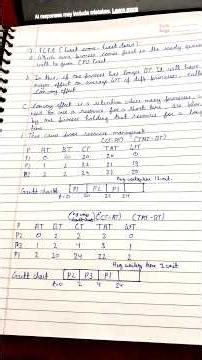 AI responses may include mistakes. Learn more
1. FCFS (First come first serve)
Which ever process comes first in the ready queue
will be given CPU first
2. In this, if the process has longer BT it will have
major effect on average WT of diff processes, called
Convoy effect
Convoy effect is a situation where many processes,
need to use a resource for a short time are
by one process holding that resource for a long
time.
This cause poor resource management
(CT-AT) (TAT-BT)
P AT BT CT TAT WT
P0 0 20 20 20 0
P1 1 2 22 21 19
P2 2 2 24
Avg waiting time 12 unit.
Gantt chart P1 P2 P1
t=0 2 20 24
(CT-AT) (TAT-BT)
P AT BT CT TAT WT
P2 0 2 2 2 0
P3 1 2 4 3 1
P1 2 20 24 22 2
Avg waiting time 1 unit
Gantt chart P2 P3 P1
t=0 2 4 24